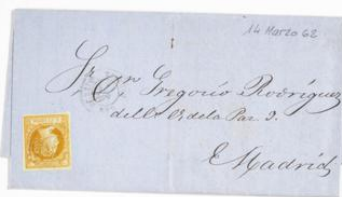 14 Marzo 62
Sr. Dn. Gregorio Rodríguez
Calle de la Paz. 9.
Madrid